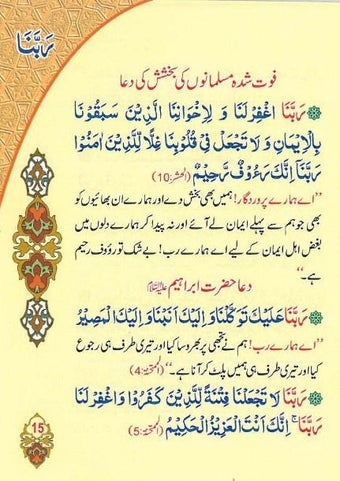 رَبَّنَا
فوت شدہ مسلمانوں کی بخشش کی دعا
رَبَّنَا اغْفِرْ لَنَا وَ لِاِخْوَانِنَا الَّذِيْنَ سَبَقُوْنَا
بِالْاِيْمَانِ وَ لَا تَجْعَلْ فِيْ قُلُوْبِنَا غِلًّا لِّلَّذِيْنَ اٰمَنُوْا
رَبَّنَاۤ اِنَّكَ رَءُوْفٌ رَّحِيْمٌ (الحشر:10)
”اے ہمارے پروردگار! ہمیں بھی بخش دے اور ہمارے ان بھائیوں کو
بھی جو ہم سے پہلے ایمان لے آئے اور نہ پیدا کر ہمارے دلوں میں
بغض اہل ایمان کے لیے اے ہمارے رب! بے شک تو رؤوف رحیم
ہے۔“
دعا حضرت ابراہیم علیہ السلام
رَبَّنَا عَلَيْكَ تَوَكَّلْنَا وَ اِلَيْكَ اَنَبْنَا وَ اِلَيْكَ الْمَصِيْرُ
”اے ہمارے رب! ہم نے تجھی پر بھروسا کیا اور تیری طرف ہی رجوع
کیا اور تیری طرف ہی ہمیں پلٹ کر آنا ہے۔“ (الممتحنۃ:4)
رَبَّنَا لَا تَجْعَلْنَا فِتْنَةً لِّلَّذِيْنَ كَفَرُوْا وَ اغْفِرْ لَنَا
رَبَّنَا ۚ اِنَّكَ اَنْتَ الْعَزِيْزُ الْحَكِيْمُ (الممتحنۃ:5)
15